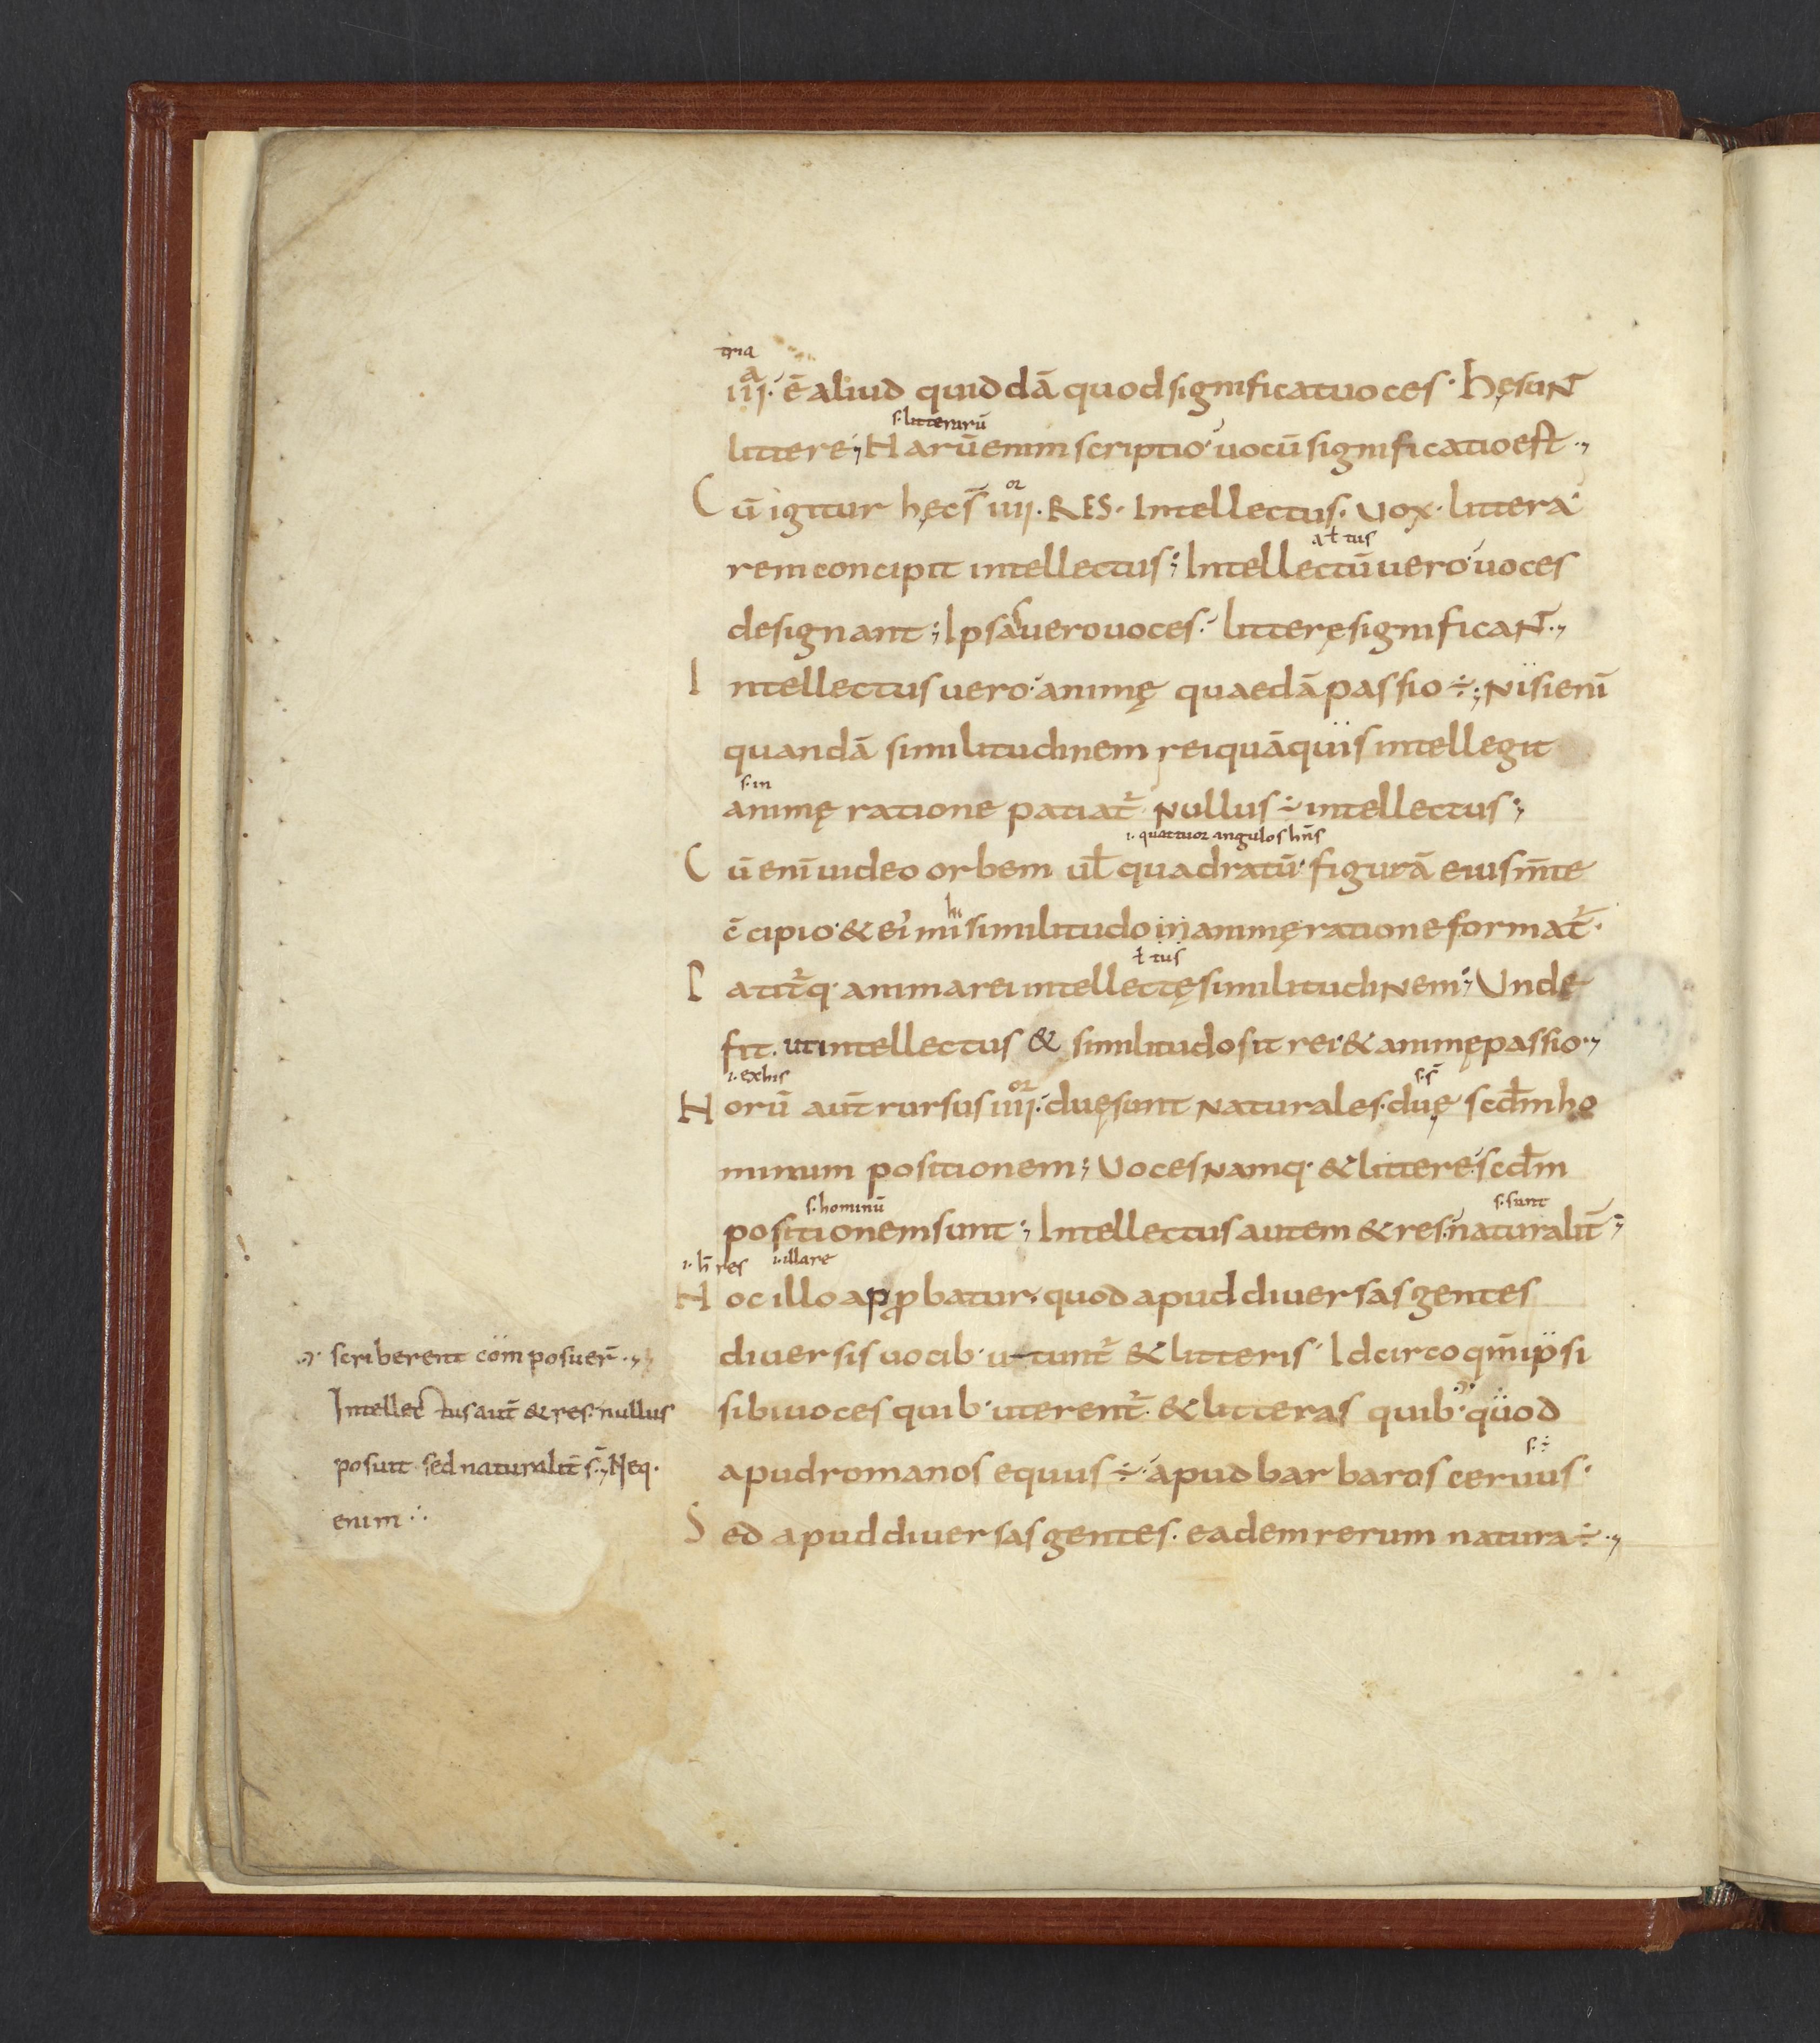 tria
iiı·ᵃ ē aliud quiddā quod significat uoces· hęsunt
s· litterarū
littere; Harū enim scriptio uocū significatio est·,
Cū igitur hęc s̄ iiıı·ᵒʳ RES· Intellectus· Uox· littera
rem concipit intellectus; Intellectū uero uoces
aƚ tus
designant; Ipsas uero uoces· litterę significant·,
Intellectus uero animę quaedā passio ÷; Nisi enī
quandā similitudinem rei quā quis intellegit
s· in
animę ratione patiat᷑ Nullus ÷ intellectus;
i· quattuor angulos hn̄s
Cū enī uideo orbem uƚ quadratū figurā eius m̄te
c̄cipio· & ei᾽ mihi similitudo in animę ratione format᷑·
ƚ tus
Patit᷑q· anima rei intellectę similitudinem; Unde
fit· ut intellectus & similitudo sit rei & animę passio·,
i· ex his
s· s̄
Horū aut̄ rursus iiıı·ᵒʳ duę sunt Naturales· duę scdm̄ ho
minum positionem; Uoces Namq· & littere scdm̄
s· hominū
s· sunt
positionem sunt; Intellectus autem & res· naturalit̄;
i· h̄ res i· illa re
Hoc illo apꝓbatur· quod apud diuersas gentes
diuersis uocib· utunt᷑ & litteris· Idcirco qm̄ ipsi
sibi uoces quib· uterent᷑· & litteras quib· quod
s· ÷
apud romanos equus ÷· apud barbaros ceruus·
Sed apud diuersas gentes· eadem rerum natura ÷·,
scriberent com posuer̄·,
Intellectus aut̄ & res· nullus
posuit sed naturalit̄ s̄·, Neq·
enim∴